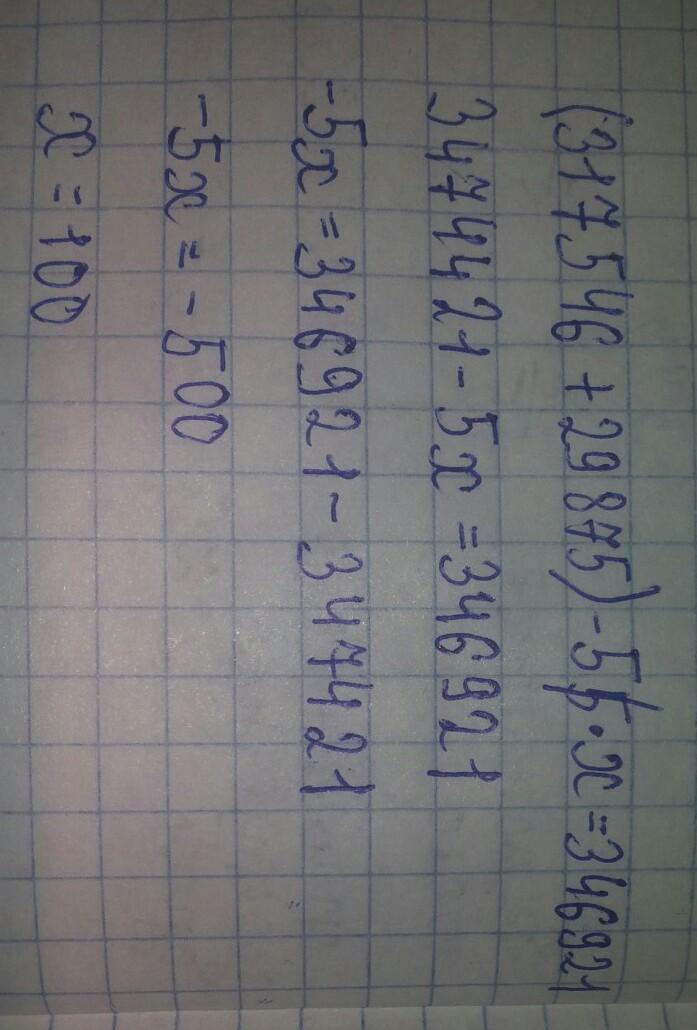 (317546 + 29875) - 5 · x = 346921
3474421 - 5x = 346921
-5x = 346921 - 347421
-5x = -500
x = 100